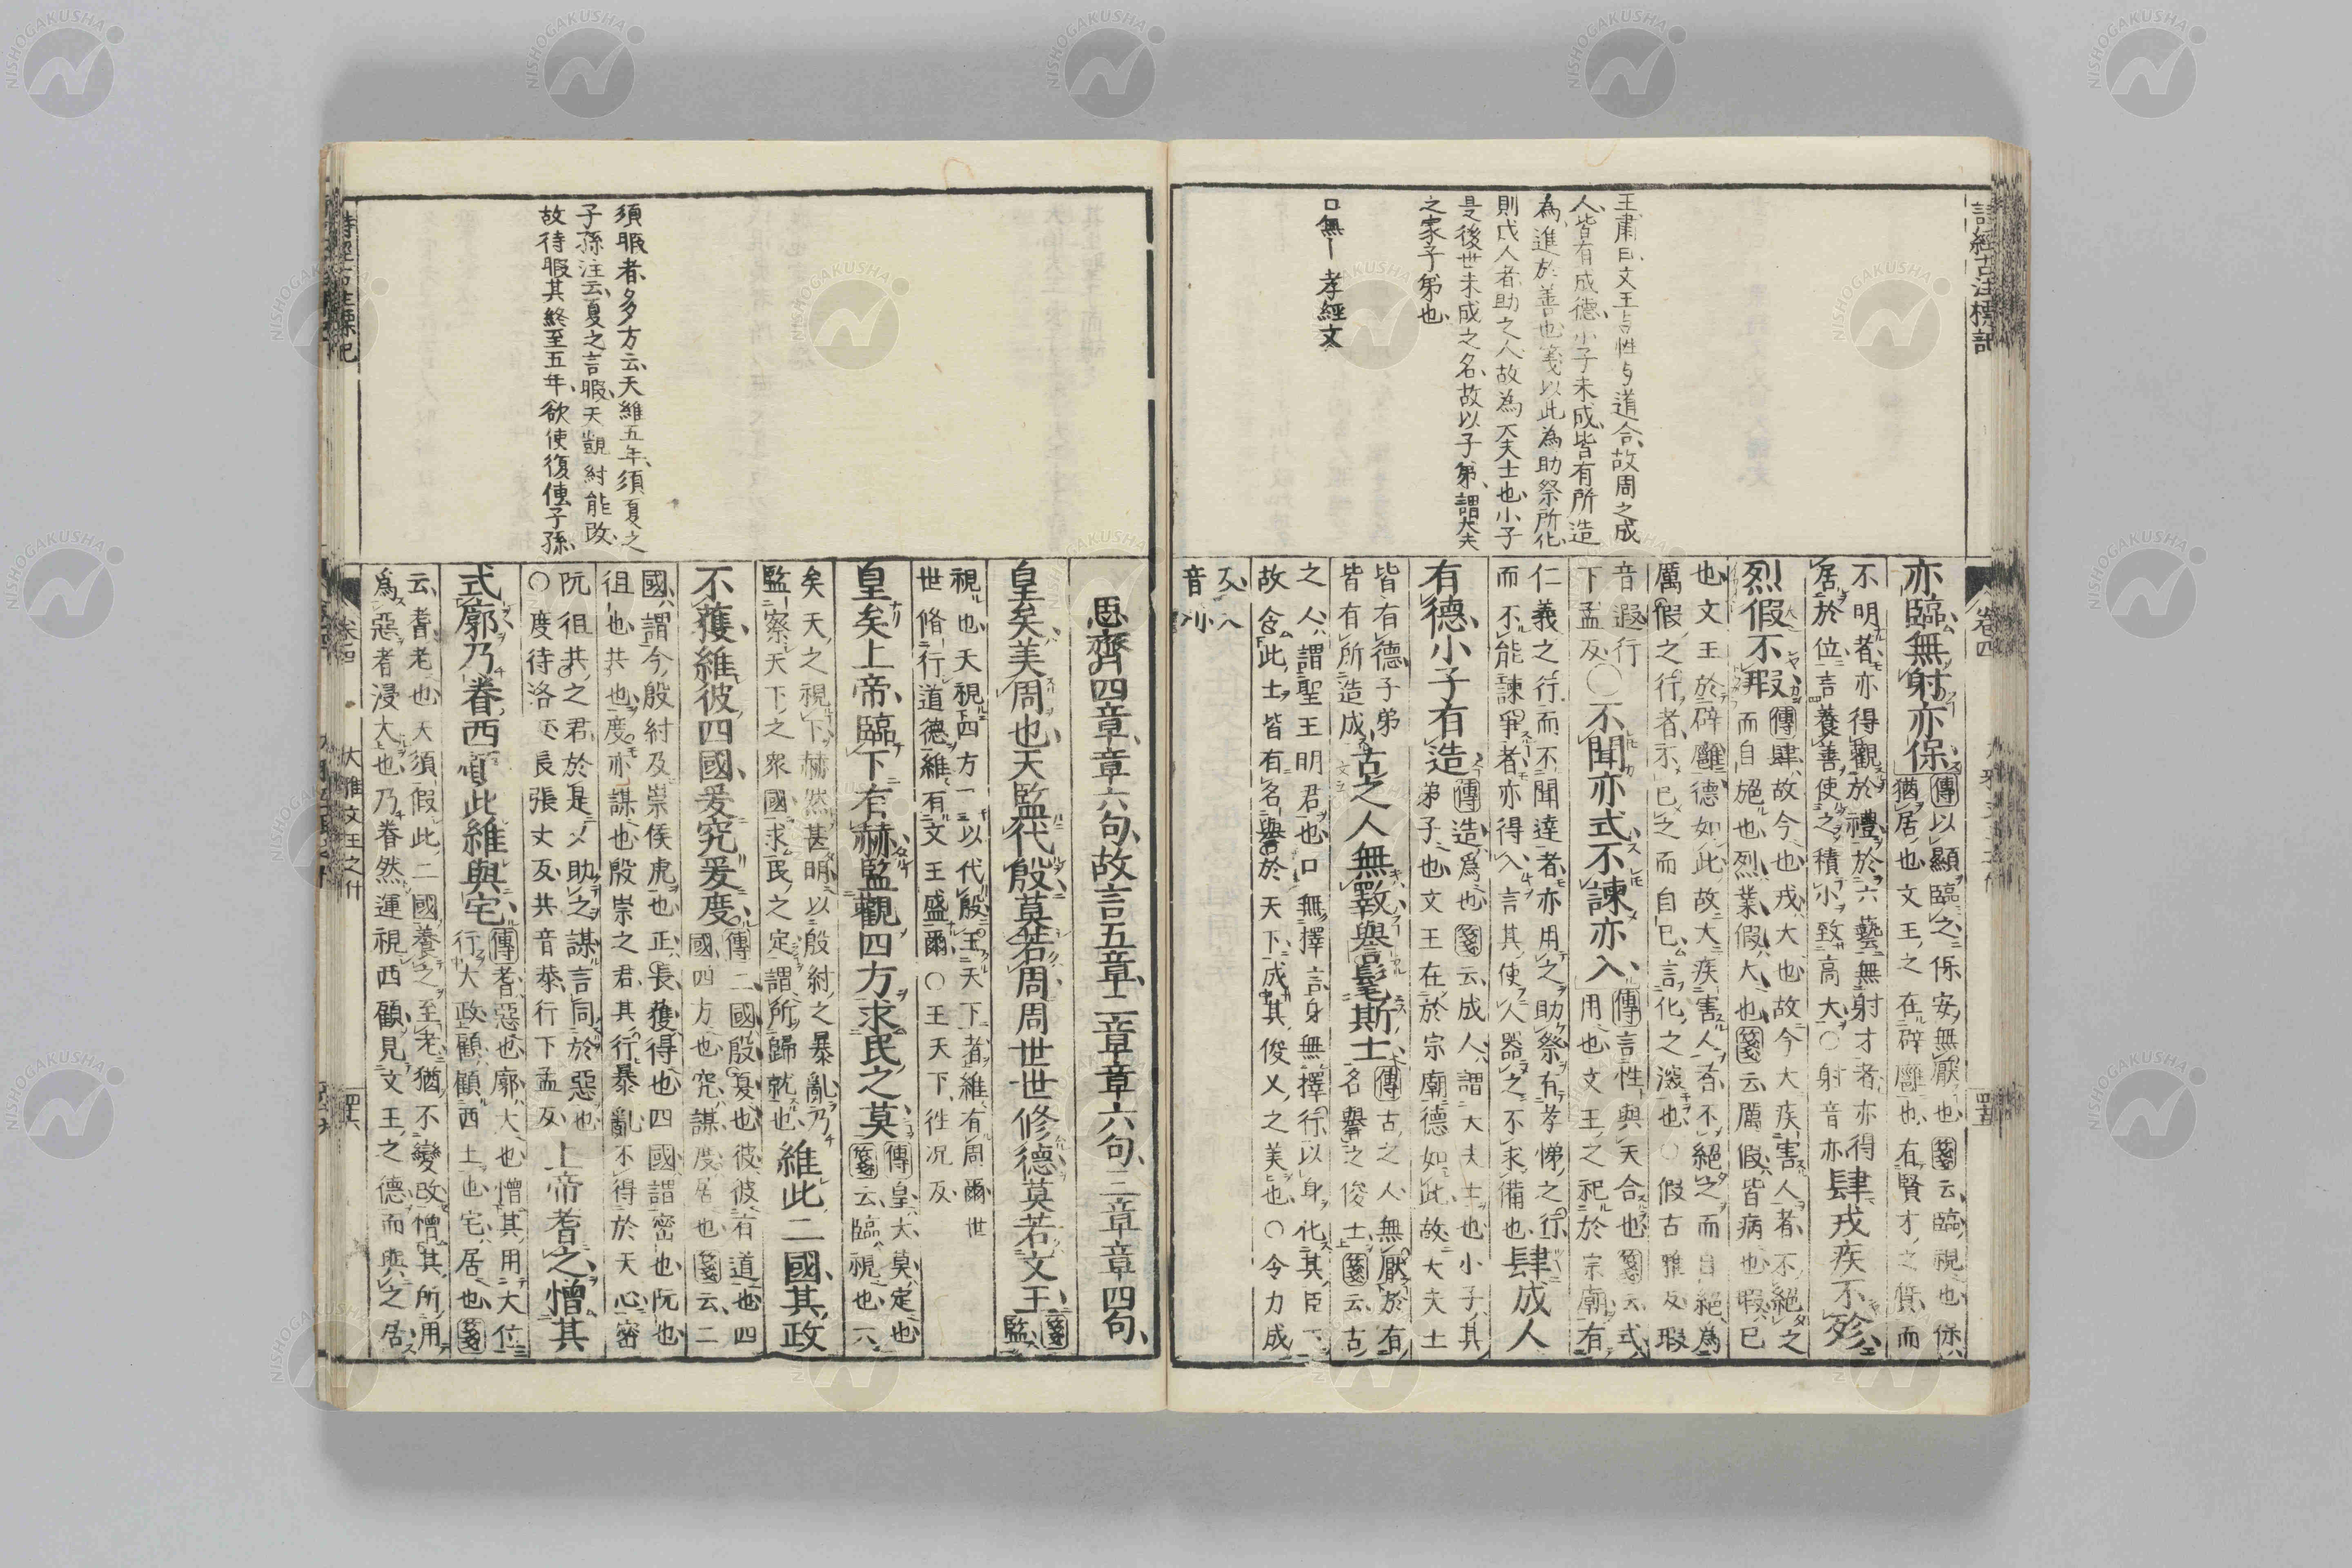 詩經古注標記
王肅曰、文王ノ性与道合、故周之成
人、皆有成德、小子未成、皆有所造
為、進於善也、箋以此為助祭所化
則成人者、助之人、故為大夫士也、小子
是後世未成之名、故以子弟、謂大夫
之家子弟也、
口無一孝經文
卷四
四十五
亦臨無射亦保
傳以顯臨之保安無厭也箋云臨視也保
猶居也文王之在辟廱也有賢才之質而
不明者亦得觀於禮於六藝無射才者亦得
居於位言養善使之積小致高大○射音亦
肆戎疾不殄
烈假不瑕
傳肆故今也戎大也故今大疾害人者不絕之
而自絕也烈業假大也箋云厲假皆病也瑕已
也文王於辟廱德如此故大疾害人者不絕之而自絕爲
厲假之行者不已之而自已言化之深也○假古雅反瑕
音遐行
下孟反○
不聞亦式不諫亦入
傳言性與天合也箋云式
用也文王之祀於宗廟有
仁義之行而不聞達者亦用之助祭有孝悌之行
而不能諫爭者亦得入言其使人器之不求備也
肆成人
有德小子有造
傳造爲也箋云成人謂大夫士也小子其
弟子也文王在於宗廟德如此故大夫士
皆有德子弟
皆有所造成
古之人無斁譽髦斯士
傳古之人無厭於有
名譽之俊士箋云古
之人謂聖王明君也口無擇言身無擇行以身化其臣下
故令此士皆有名譽於天下成其俊乂之美也○令力成
反乂
音刈
思齊四章章六句故言五章二章章六句三章章四句
皇矣美周也天監代殷莫若周周世世修德莫若文王
箋監
視也天視四方可以代殷王天下者維有周爾世
世脩行道德維有文王盛爾○王天下往況反
皇矣上帝臨下有赫監觀四方求民之莫
傳皇大莫定也
箋云臨視也大
矣天之視下赫然甚明以殷紂之暴亂乃
監察天下之衆國求民之定謂所歸就也
維此二國其政
不獲維彼四國爰究爰度
傳二國殷夏也彼彼有道也四
國四方也究謀度居也箋云二
國謂今殷紂及崇侯虎也正長獲得也四國謂密也阮也
徂也共也度亦謀也殷崇之君其行暴亂不得於天心密
阮徂共之君於是又助之謀言同於惡也
○度待洛反長張丈反共音恭行下孟反
上帝耆之憎其
式廓乃眷西顧此維與宅
傳耆惡也廓大也憎其用大位
行大政顧顧西土也宅居也箋
云耆老也天須假此二國養之至老猶不變改憎其所用
爲惡者浸大也乃眷然運視西顧見文王之德而與之居
須暇者、多方云、天維五年、須夏之
子孫注云、夏之言暇、天覬紂能改
故待暇其終至五年、欲使復傳子孫、
詩經古注標記
卷四
大雅文王之什
四十六
NISHOGAKUSHA